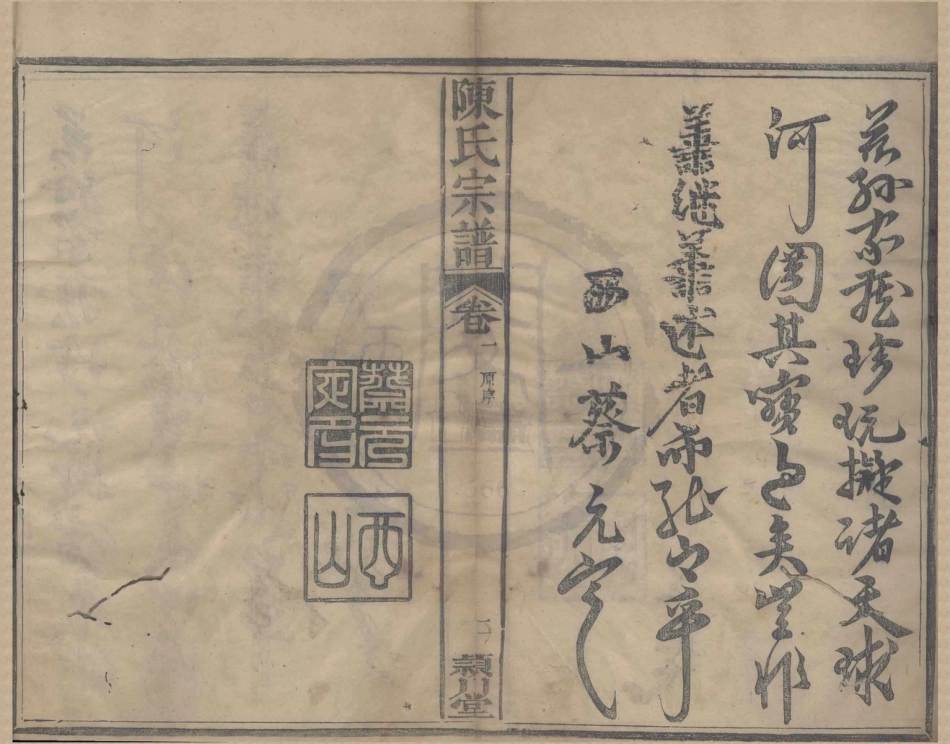 孫家藏珍玩擬諸天球
河圖其寶矣豈非
善繼善述者而能乎
西山蔡元定
陳氏宗譜 卷一 原序 二 潁川堂
蔡元定印
西山